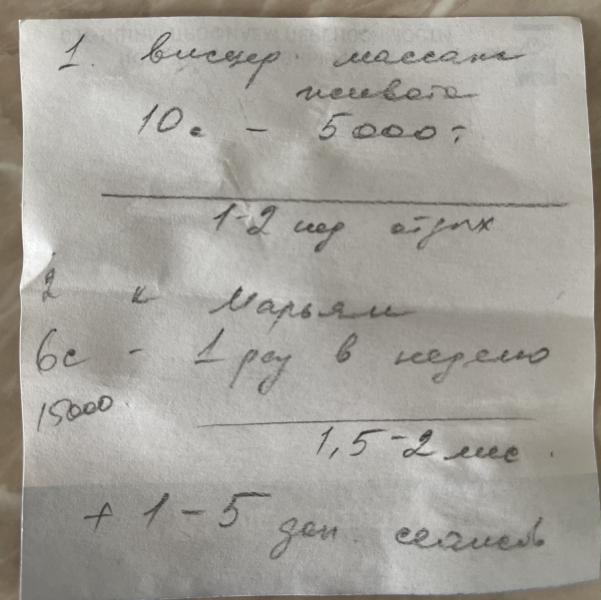 1. висцер. массаж
живота
10с - 5000т
1-2 нед отдых
2 к Марьям
6с - 1 раз в неделю
15000
1,5-2 мес.
+ 1-5 доп. сеансов